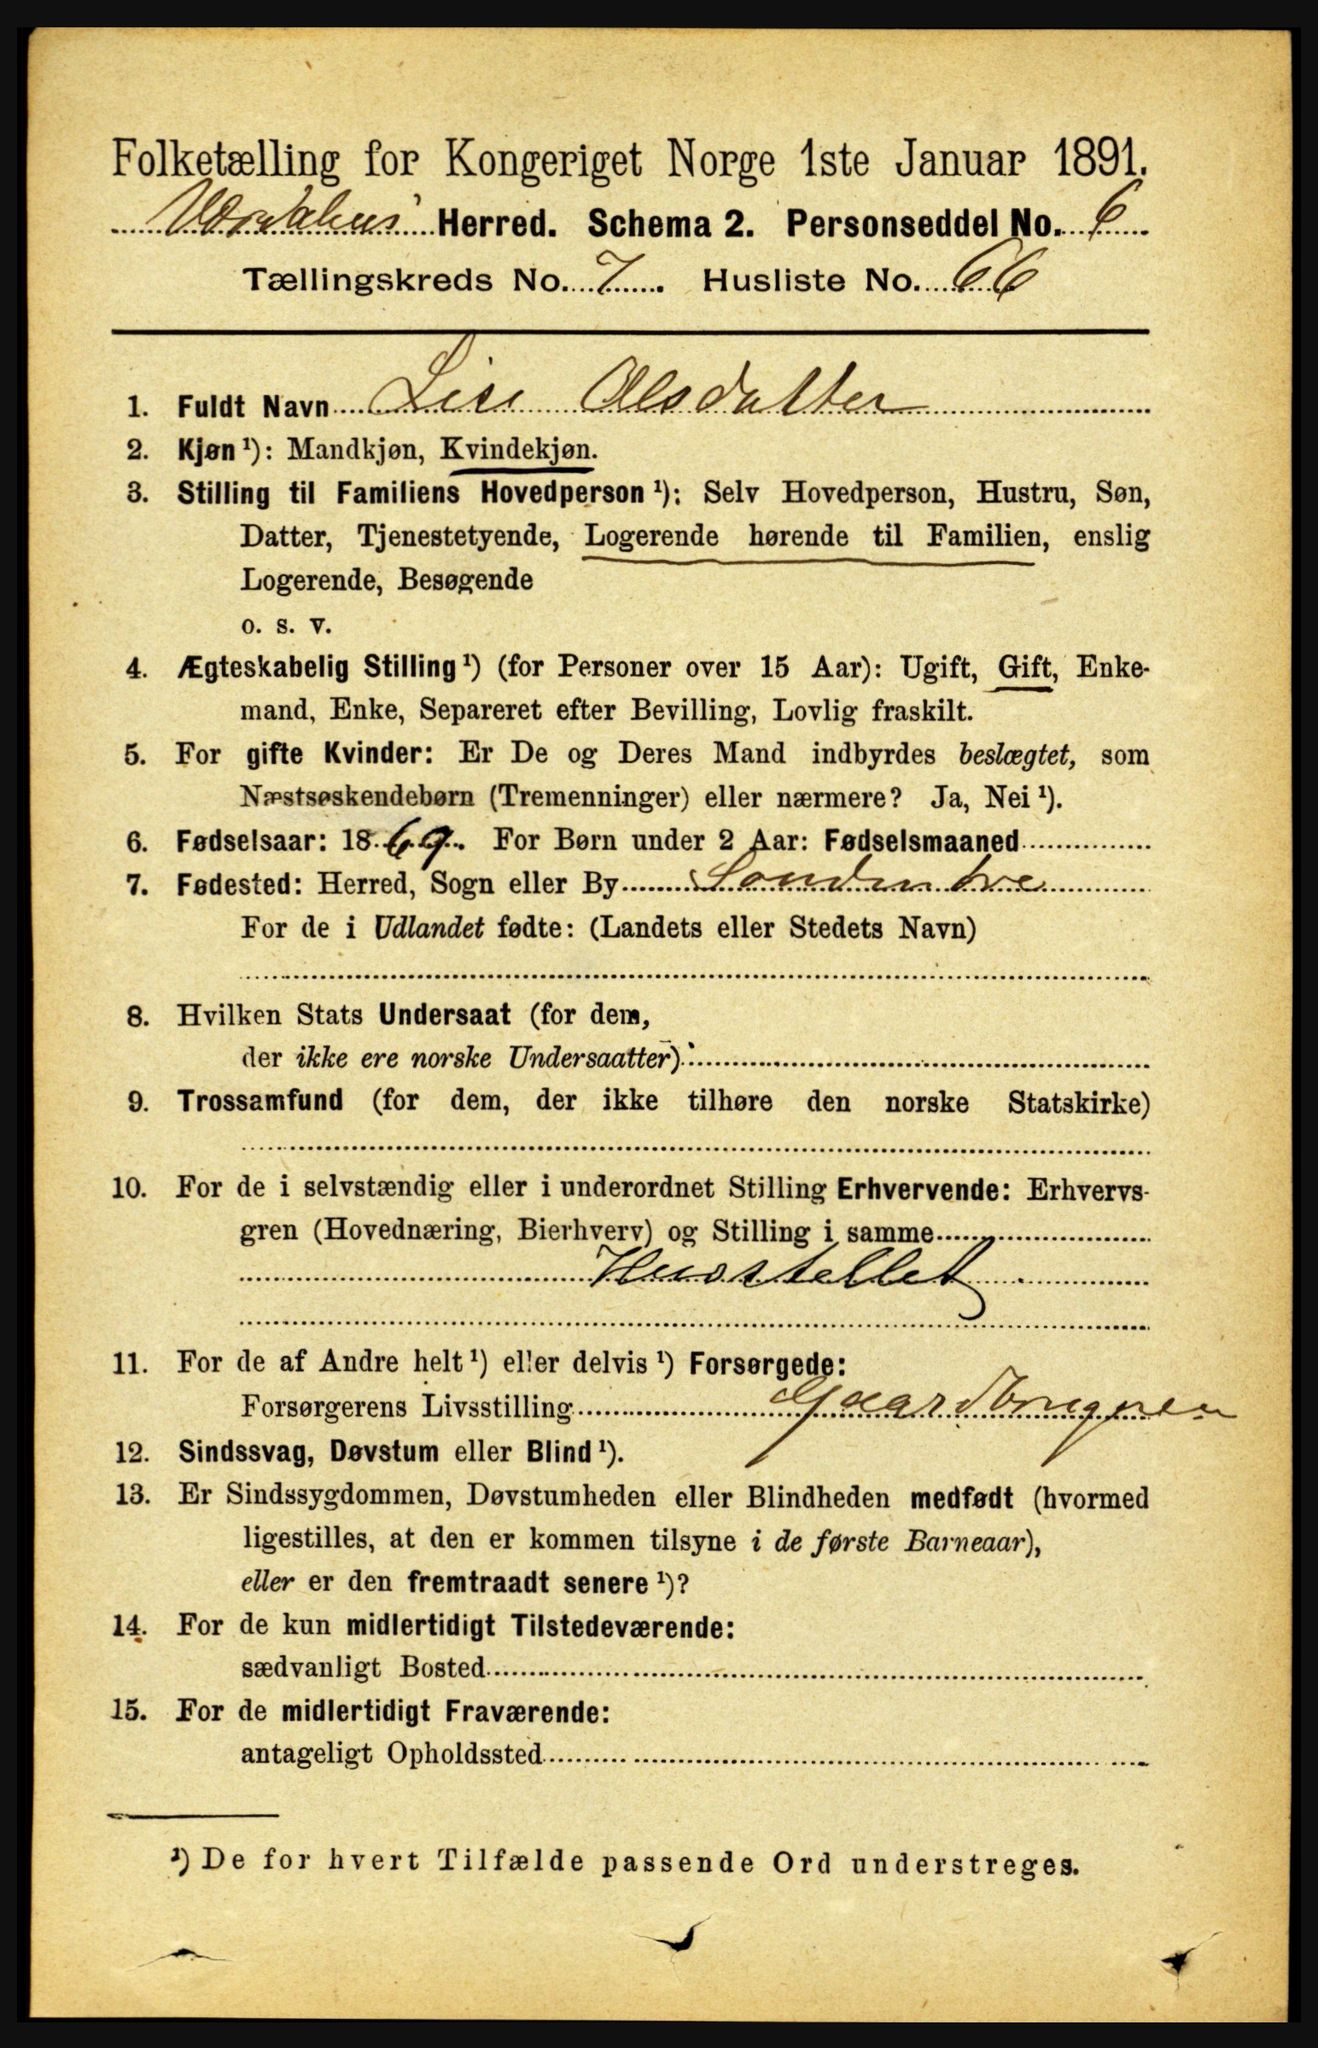 Folketælling for Kongeriget Norge 1ste Januar 1891.
Herred. Schema 2. Personseddel No. 6
Tællingskreds No. 7. Husliste No. 66
1. Fuldt Navn Lise Olsdatter
2. Kjøn ¹): Mandkjøn, Kvindekjøn.
3. Stilling til Familiens Hovedperson ¹): Selv Hovedperson, Hustru, Søn,
Datter, Tjenestetyende, Logerende hørende til Familien, enslig
Logerende, Besøgende
o. s. v.
4. Ægteskabelig Stilling ¹) (for Personer over 15 Aar): Ugift, Gift, Enke-
mand, Enke, Separeret efter Bevilling, Lovlig fraskilt.
5. For gifte Kvinder: Er De og Deres Mand indbyrdes beslægtet, som
Næstsøskendebørn (Tremenninger) eller nærmere? Ja, Nei ¹).
6. Fødselsaar: 1869. For Børn under 2 Aar: Fødselsmaaned
7. Fødested: Herred, Sogn eller By
For de i Udlandet fødte: (Landets eller Stedets Navn)
8. Hvilken Stats Undersaat (for dem,
der ikke ere norske Undersaatter):
9. Trossamfund (for dem, der ikke tilhøre den norske Statskirke)
10. For de i selvstændig eller i underordnet Stilling Erhvervende: Erhvervs-
gren (Hovednæring, Bierhverv) og Stilling i samme
Husstellet
11. For de af Andre helt ¹) eller delvis ¹) Forsørgede:
Forsørgerens Livsstilling
12. Sindssvag, Døvstum eller Blind ¹).
13. Er Sindssygdommen, Døvstumheden eller Blindheden medfødt (hvormed
ligestilles, at den er kommen tilsyne i de første Barneaar),
eller er den fremtraadt senere ¹)?
14. For de kun midlertidigt Tilstedeværende:
sædvanligt Bosted
15. For de midlertidigt Fraværende:
antageligt Opholdssted
¹) De for hvert Tilfælde passende Ord understreges.